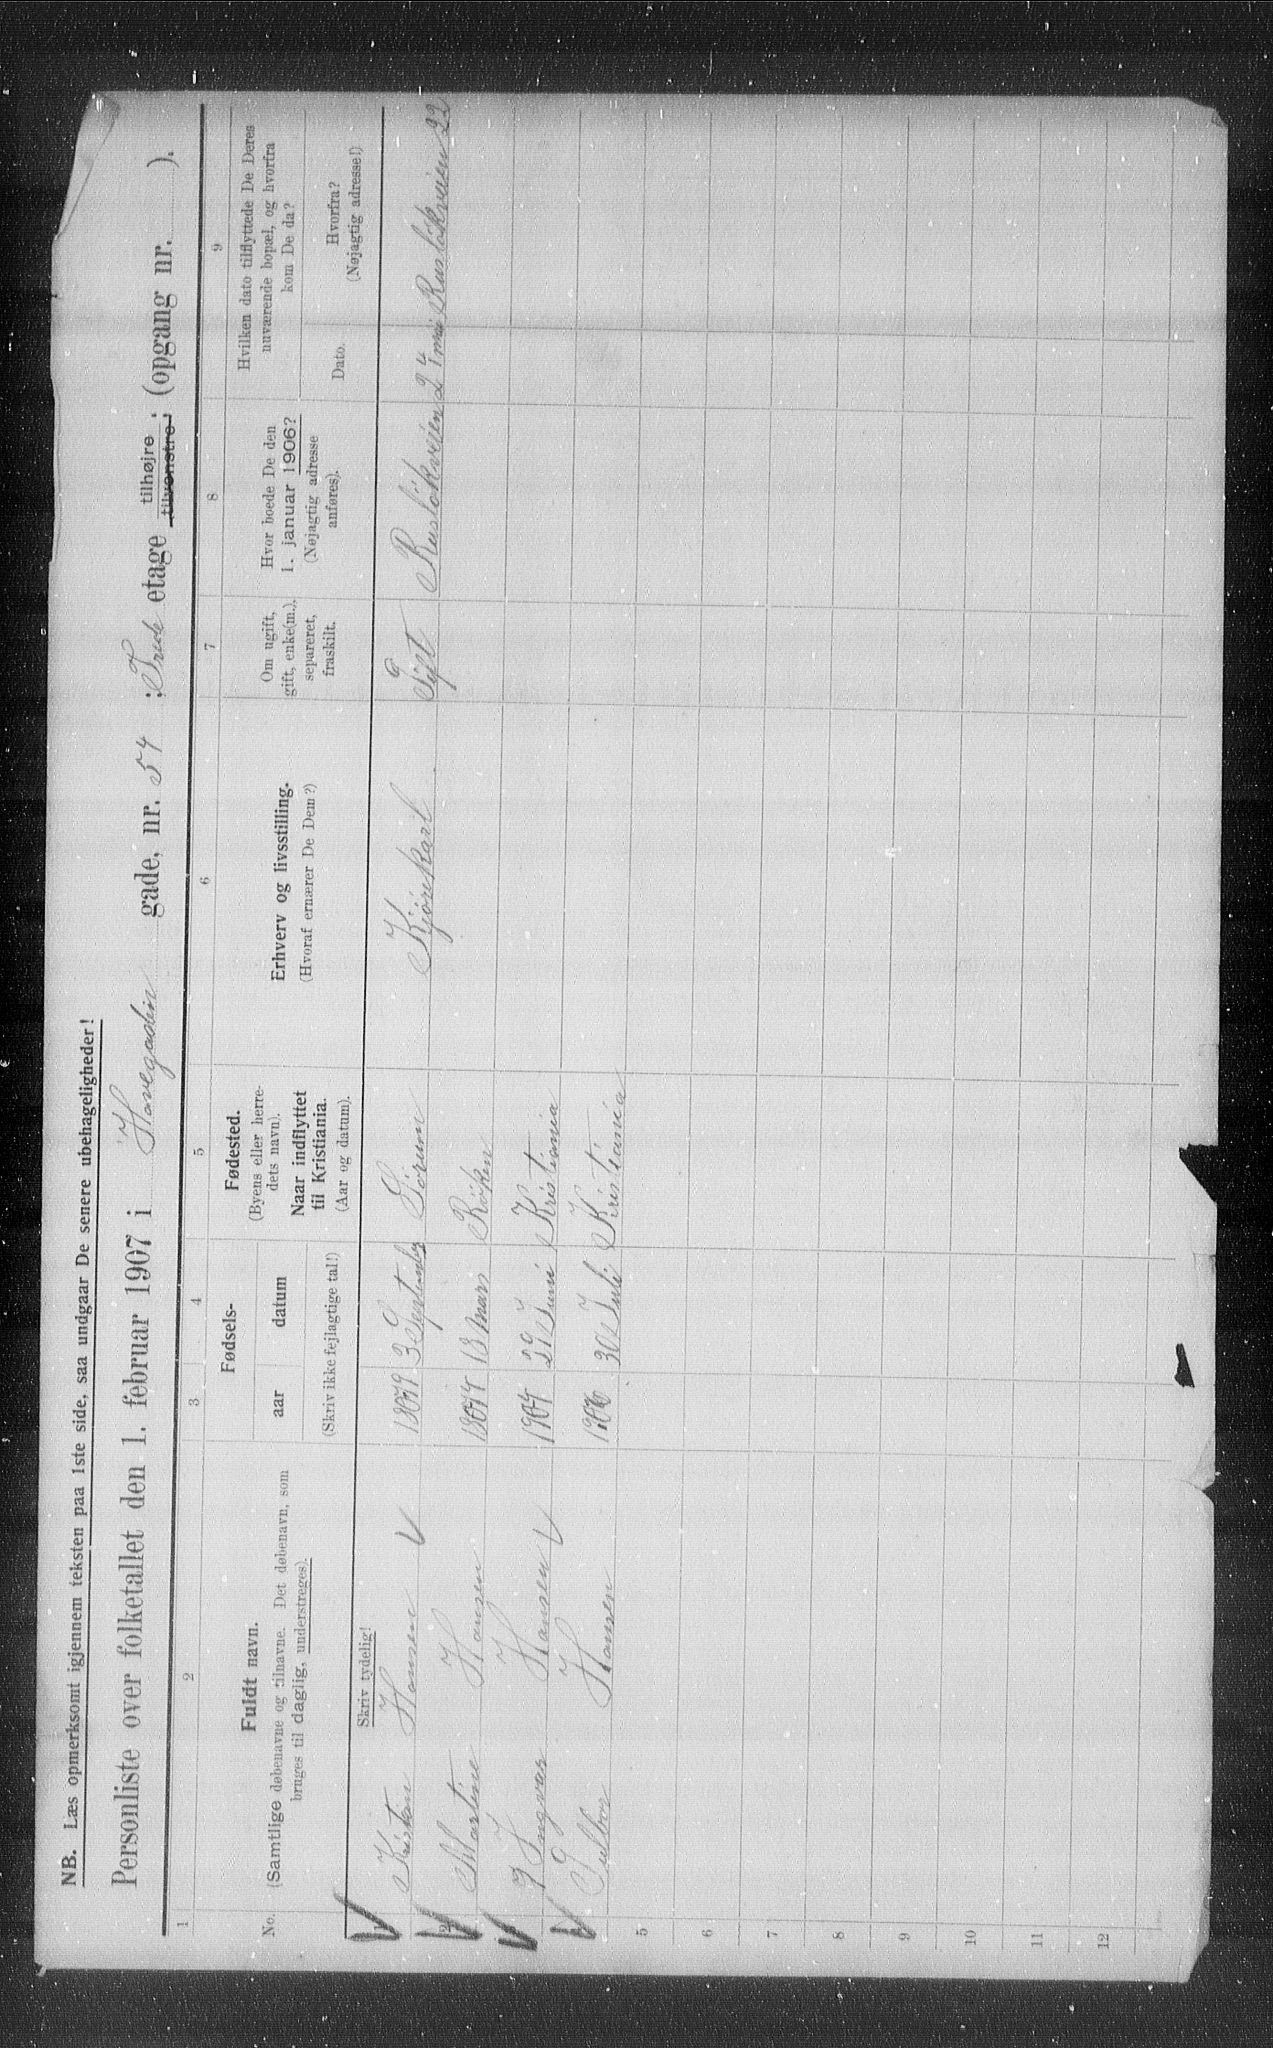 NB. Læs opmerksomt igjennem teksten paa 1ste side, saa undgaar De senere ubehageligheder!
Personliste over folketallet den 1. februar 1907 i Havegaden gade, nr. 54 : Trede etage tilhøjre. (opgang nr. ).
tilvenstre.
1 2 3 4 5 6 7 8 9
No. Fuldt navn.
(Samtlige døbenavne og tilnavne. Det døbenavn, som
bruges til daglig, understreges).
Fødsels-
aar datum
(Skriv ikke fejlagtige tal!)
Fødested.
(Byens eller herre-
dets navn).
Naar indflyttet
til Kristiania.
(Aar og datum).
Erhverv og livsstilling.
(Hvoraf ernærer De Dem?)
Om ugift,
gift, enke(m.),
separeret,
fraskilt.
Hvor boede De den
1. januar 1906?
(Nøjagtig adresse
anføres).
Hvilken dato tilflyttede De Deres
nuværende bopæl, og hvorfra
kom De da?
Dato. Hvorfra?
(Nøjagtig adresse!)
Skriv tydelig!
Kristian Hansen 1879 3 September Sörum Kjörekarl Gift Rusløkveien 24 mai Rusløkveien 22
2 Martine Hansen 1874 13 Mars Röken
Ingvar Hansen 1904 29 Juni Kristiania
Hansen 1906 30 Juli Kristiania
5
6
7
8
9
10
11
12